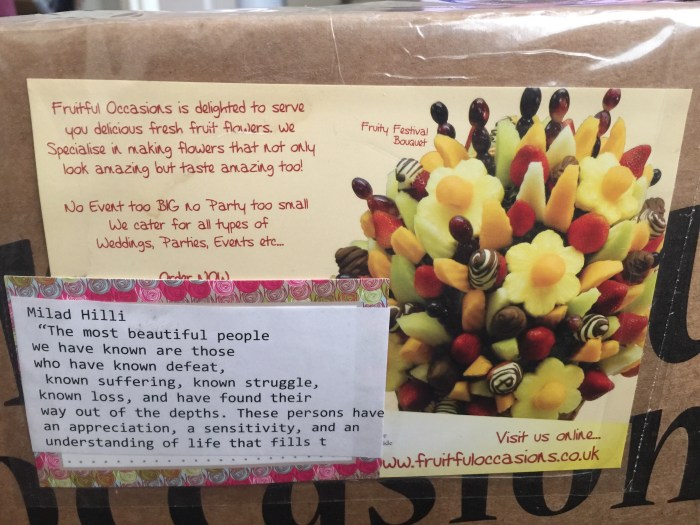 Fruitful Occasions is delighted to serve
you delicious fresh fruit flowers. We
Specialise in making flowers that not only
look amazing but taste amazing too!
No Event too BIG no Party too small
We cater for all types of
Weddings, Parties, Events etc...
Order NOW
Fruity Festival
Bouquet
Milad Hilli
“The most beautiful people
we have known are those
who have known defeat,
known suffering, known struggle,
known loss, and have found their
way out of the depths. These persons have
an appreciation, a sensitivity, and an
understanding of life that fills t
Visit us online...
www.fruitfuloccasions.co.uk